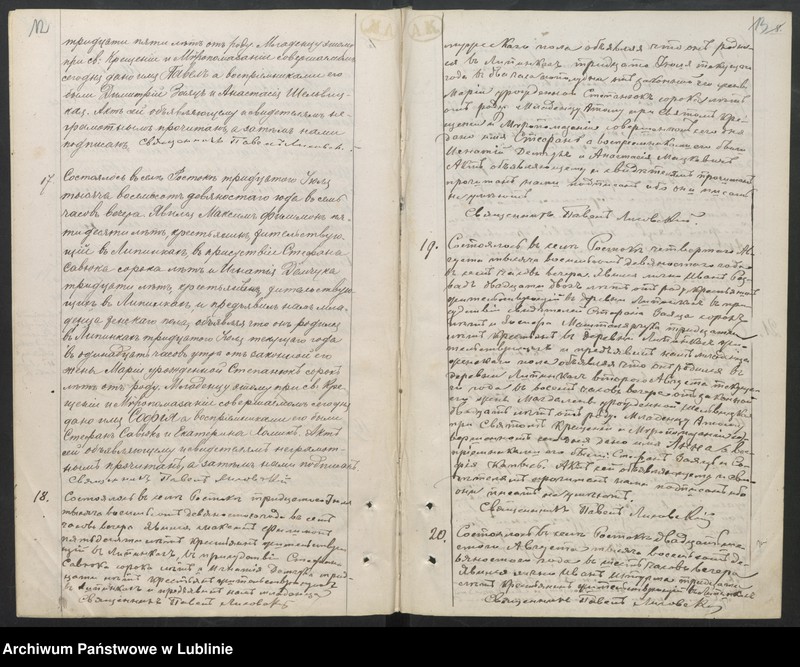 12
тридцати пяти лѣтъ отъ роду. Младенцу этому
при св. Крещеніи и Мѵропомазаніи совершаемомъ
сегодня дано имя Павелъ а воспріемниками его
были Димитрій Заяцъ и Анастасія
Актъ сей объявляющему и свидѣтелямъ не-
грамотнымъ прочитанъ, а затѣмъ нами
подписанъ. Священникъ Павелъ Лиховскій
17.
Состоялось въ селѣ Ростокъ тридцатаго Іюля
тысяча восемьсотъ девяностаго года въ семь
часовъ вечера. Явился Максимъ Филимонъ пя-
тидесяти лѣтъ, крестьянинъ жительствую-
щій въ Липинкахъ, въ присутствіи Стефана
Савюка сорока лѣтъ и Игнатія
тридцати лѣтъ, крестьянъ жительствую-
щихъ въ Липинкахъ, и предъявилъ намъ мла-
денца женскаго пола, объявляя что онъ родился
въ Липинкахъ тридцатаго Іюля текущаго года
въ одинадцать часовъ утра отъ законной его
жены Маріи урожденной Степанюкъ сорокъ
лѣтъ отъ роду. Младенцу этому при св. Кре-
щеніи и Мѵропомазаніи совершаемомъ сегодня
дано имя Софія а воспріемниками его были
Стефанъ Савюкъ и Екатерина Актъ
сей объявляющему и свидѣтелямъ неграмот-
нымъ прочитанъ, а затѣмъ нами подписанъ
Священникъ Павелъ Лиховскій
18.
Состоялось въ селѣ Ростокъ тридцатаго Іюля
тысяча восемьсотъ девяностаго года въ семь
часовъ вечера явился Максимъ Филимонъ
пятьдесяти лѣтъ крестьянинъ жительствую-
щій въ Липинкахъ, въ присутствіи Стефана
Савюка сорока лѣтъ и Игнатія трид-
цати лѣтъ крестьянъ жительствующихъ
въ Липинкахъ и предъявилъ намъ младенца
Священникъ Павелъ Лиховскій
13
мужескаго пола объявляя что онъ родил-
ся въ Липинкахъ тридцатаго Іюля текущаго
года въ часовъ отъ законной его жены
Маріи урожденной Степанюкъ сорокъ лѣтъ
отъ роду. Младенцу этому при Святомъ Кре-
щеніи и Мѵропомазаніи совершенномъ сего дня
дано имя Стефанъ а воспріемниками его были
Игнатій и Анастасія
Актъ объявляющему и свидѣтелямъ прочитанъ
нами подписанъ ибо они писать
Священникъ Павелъ Лиховскій
19.
Состоялось въ селѣ Ростокъ четвертаго Ав-
густа тысяча восемьсотъ девяностаго года
въ семь часовъ вечера. Явился лично Иванъ
двадцати двухъ лѣтъ отъ роду крестьянинъ
жительствующій въ деревни Липинкахъ въ при-
сутствіи свидѣтелей Стефана Заяца сорока
лѣтъ и тридцати
лѣтъ крестьянъ въ деревни Липинкахъ жи-
тельствующихъ и предъявилъ намъ младенца
женскаго пола объявляя что онъ родился въ
деревни Липинкахъ втораго Августа текуща-
го года въ восемь часовъ вечера отъ законной
его жены Магдалены урожденной
двадцати лѣтъ отъ роду. Младенцу этому
при Святомъ Крещеніи и Мѵропомазаніи со-
вершенномъ сегодня дано имя Анна а вос-
пріемниками его были Стефанъ Заяцъ и
Актъ сей объявляющему и сви-
дѣтелямъ прочитанъ нами подписанъ ибо
они писать
Священникъ Павелъ Лиховскій
20.
Состоялось въ селѣ Ростокъ
Августа тысяча восемьсотъ де-
вяностаго года въ часовъ вечера
Явился лично Иванъ тридцати
лѣтъ крестьянинъ жительствующій въ Липинкахъ
Священникъ Павелъ Лиховскій
Archiwum Państwowe w Lublinie